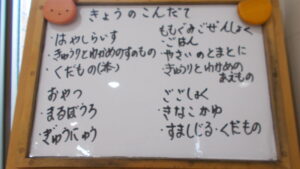 きょうのこんだて
・はやしらいす
・きゅうりとわかめのすのもの
・くだもの
おやつ
・まるぼうろ
・ぎゅうにゅう
ももぐみごぜんしょく
・ごはん
・やさいのとまとに
・きゅうりとわかめの
あえもの
ごごしょく
・きなこかゆ
・すましじる・くだもの